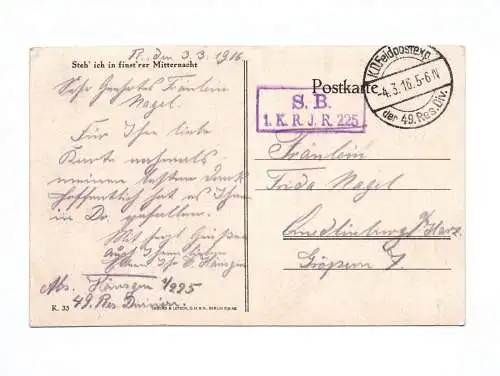 R., den 3.3.1916
Steh' ich in finst'rer Mitternacht
Sehr Geehrtes Fräulein
Nagel.
Für Ihre liebe
Karte nochmals
meinen besten Dank
hoffentlich hat es Ihnen
in Do. gefallen.
Mit herzl. Grüßen
auch Ihrem
K. 35
Abs. 1/225
49. Res Division.
Postkarte
S. B.
1. K. R. J. R. 225
K.D.Feldpostexp.
-4.3.16.5-6N
der 49.Res.Div.
Fräulein
Frida Nagel
Quedlinburg a/Harz
Gröpern